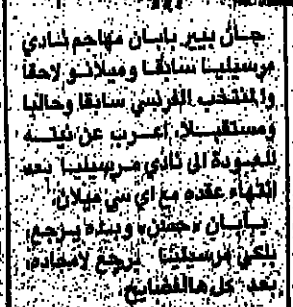 جان بيير بابان مهاجم نادي
مرسيليا سابقا وميلانو لاحقا
والمنتخب الفرنسي سابقا وحاليا
ومستقبلا، اعرب عن نيته
للعودة الى نادي مرسيليا بعد
انتهاء عقده مع اي سي ميلان.
بابان «حمش» وبده يرجع
بلكي مرسيليا يرجع لامجاده،
بعد كل هالفضايح.